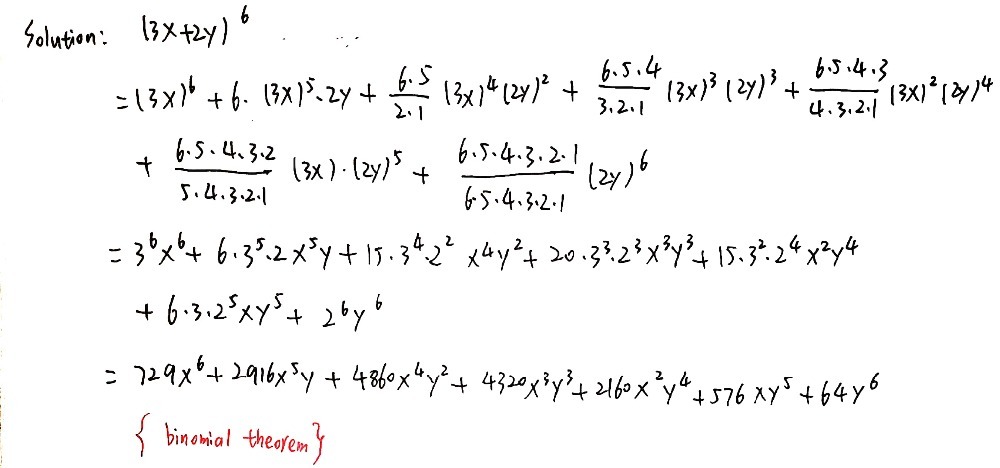 Solution: (3x+2y)^6
= (3x)^6 + 6·(3x)^5·2y + \frac{6·5}{2·1}(3x)^4(2y)^2 + \frac{6·5·4}{3·2·1}(3x)^3(2y)^3 + \frac{6·5·4·3}{4·3·2·1}(3x)^2(2y)^4
+ \frac{6·5·4·3·2}{5·4·3·2·1}(3x)·(2y)^5 + \frac{6·5·4·3·2·1}{6·5·4·3·2·1}(2y)^6
= 3^6x^6 + 6·3^5·2x^5y + 15·3^4·2^2 x^4y^2 + 20·3^3·2^3x^3y^3 + 15·3^2·2^4x^2y^4
+ 6·3·2^5xy^5 + 2^6y^6
= 729x^6 + 2916x^5y + 4860x^4y^2 + 4320x^3y^3 + 2160x^2y^4 + 576xy^5 + 64y^6
{ binomial theorem}